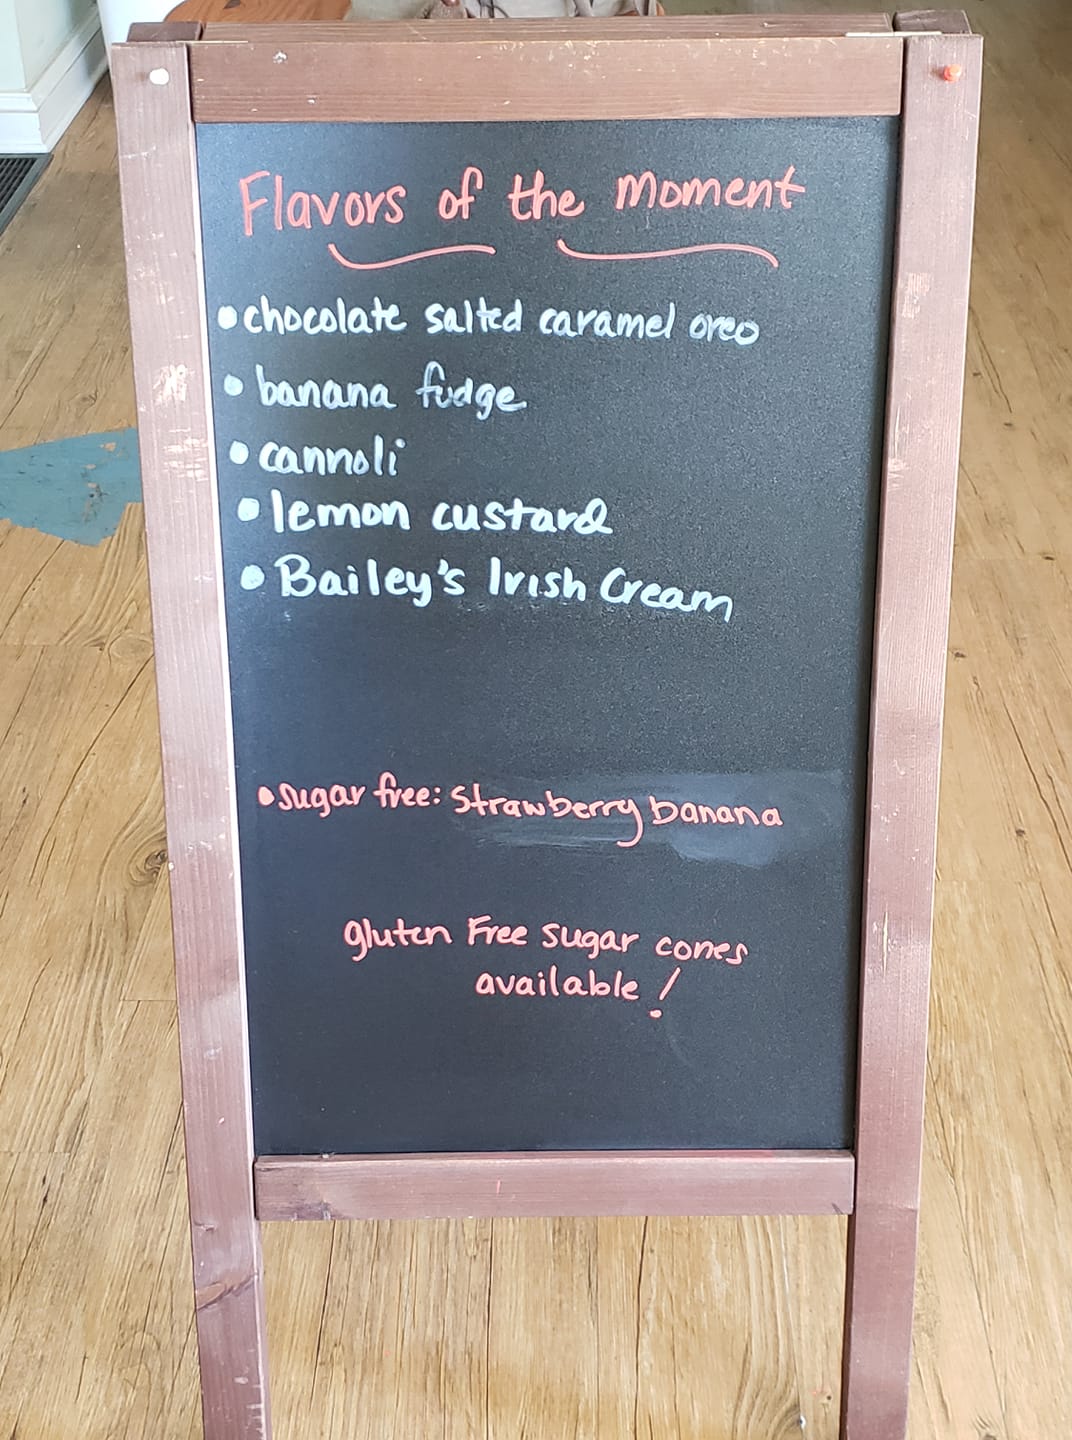 Flavors of the Moment
• chocolate salted caramel oreo
• banana fudge
• cannoli
• lemon custard
• Bailey's Irish Cream
• sugar free: Strawberry banana
gluten Free sugar cones
available!